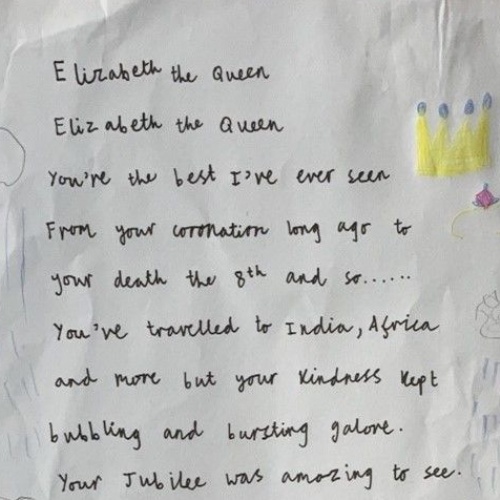 Elizabeth the Queen
Elizabeth the Queen
You're the best I've ever seen
From your coronation long ago to
your death the 8th and so......
You've travelled to India, Africa
and more but your kindness kept
bubbling and bursting galore.
Your Jubilee was amazing to see.